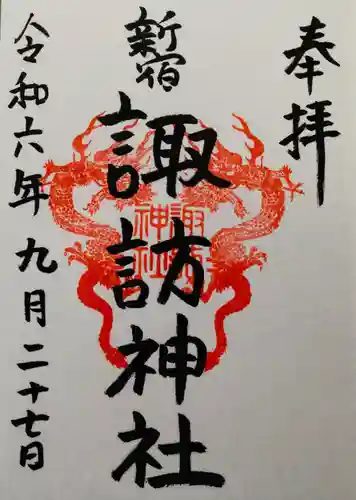 奉拝
新宿
諏訪神社
諏訪
神社
令和六年九月二十七日